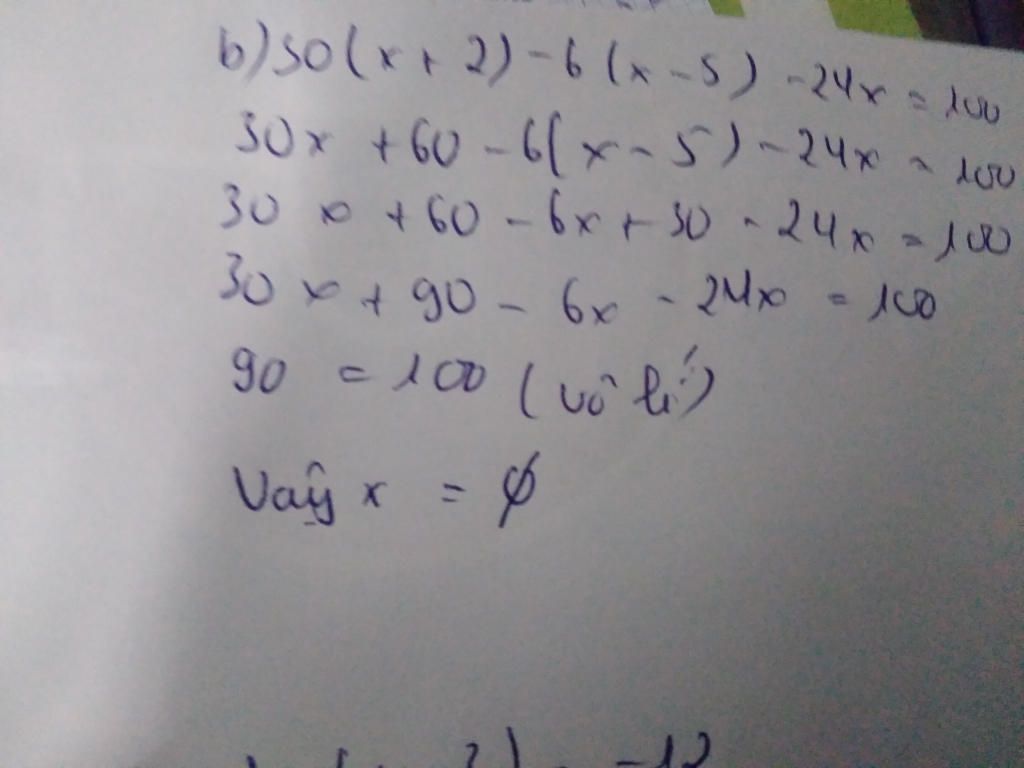 b) 30(x + 2) - 6(x - 5) - 24x = 100
30x + 60 - 6(x - 5) - 24x = 100
30 x + 60 - 6x + 30 - 24x = 100
30 x + 90 - 6x - 24x = 100
90 = 100 (vô lí)
Vậy x = ∅